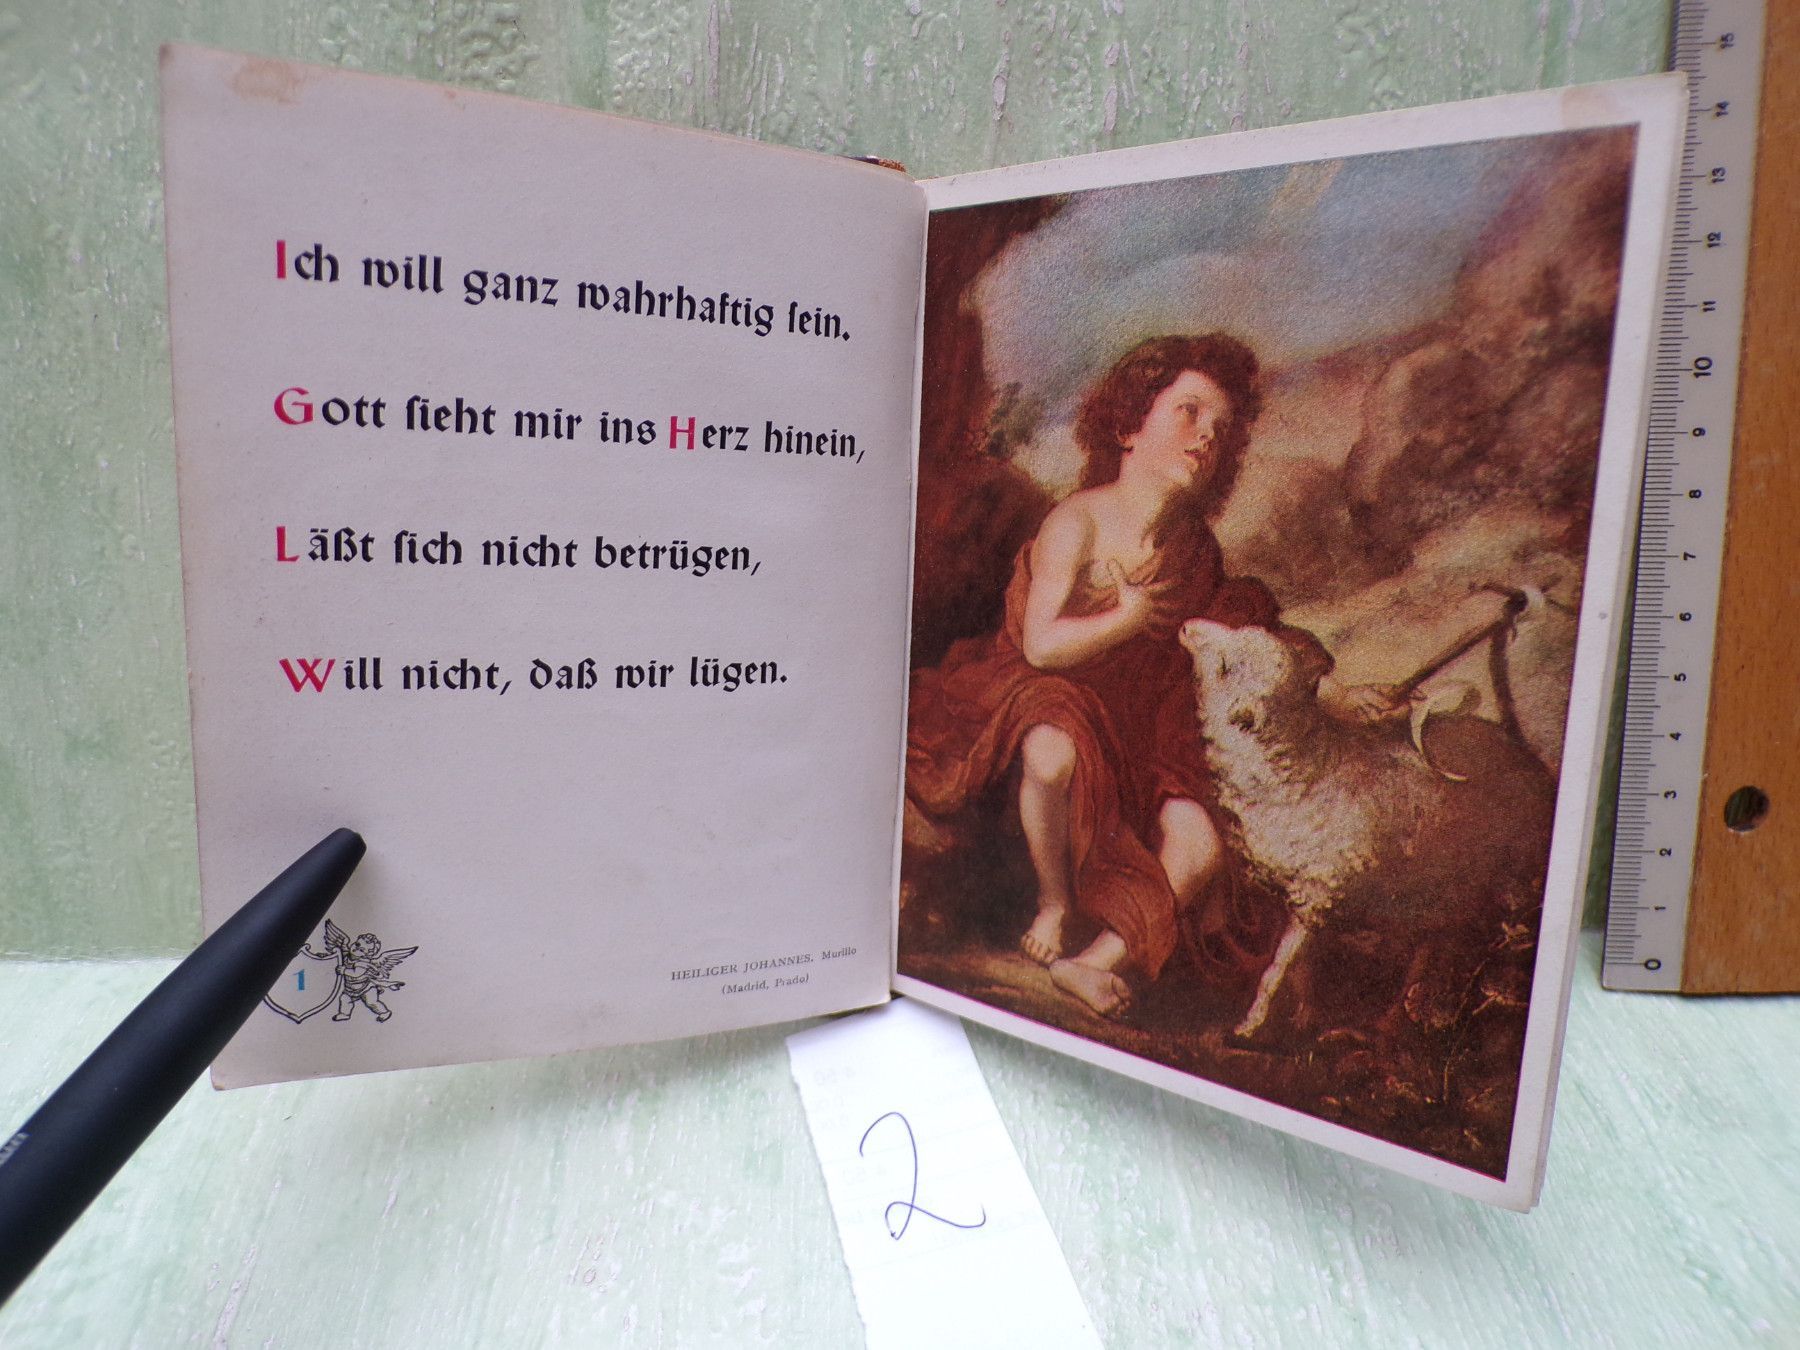 Ich will ganz wahrhaftig ſein.
Gott ſieht mir ins Herz hinein,
Läßt ſich nicht betrügen,
Will nicht, daß wir lügen.
1
HEILIGER JOHANNES. Murillo
(Madrid, Prado)
2
15
14
13
12
11
10
9
8
7
6
5
4
3
2
1
0